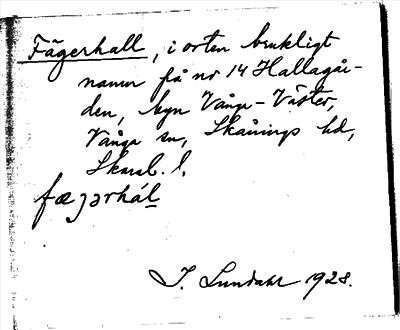 Fägerhall, i orten brukligt
namn på nr 14 Hallagår-
den, byn Vånga-Väster,
Vånga sn, Skånings hd,
Skarab. l.
fæjərhál
J. Lundahl 1928.